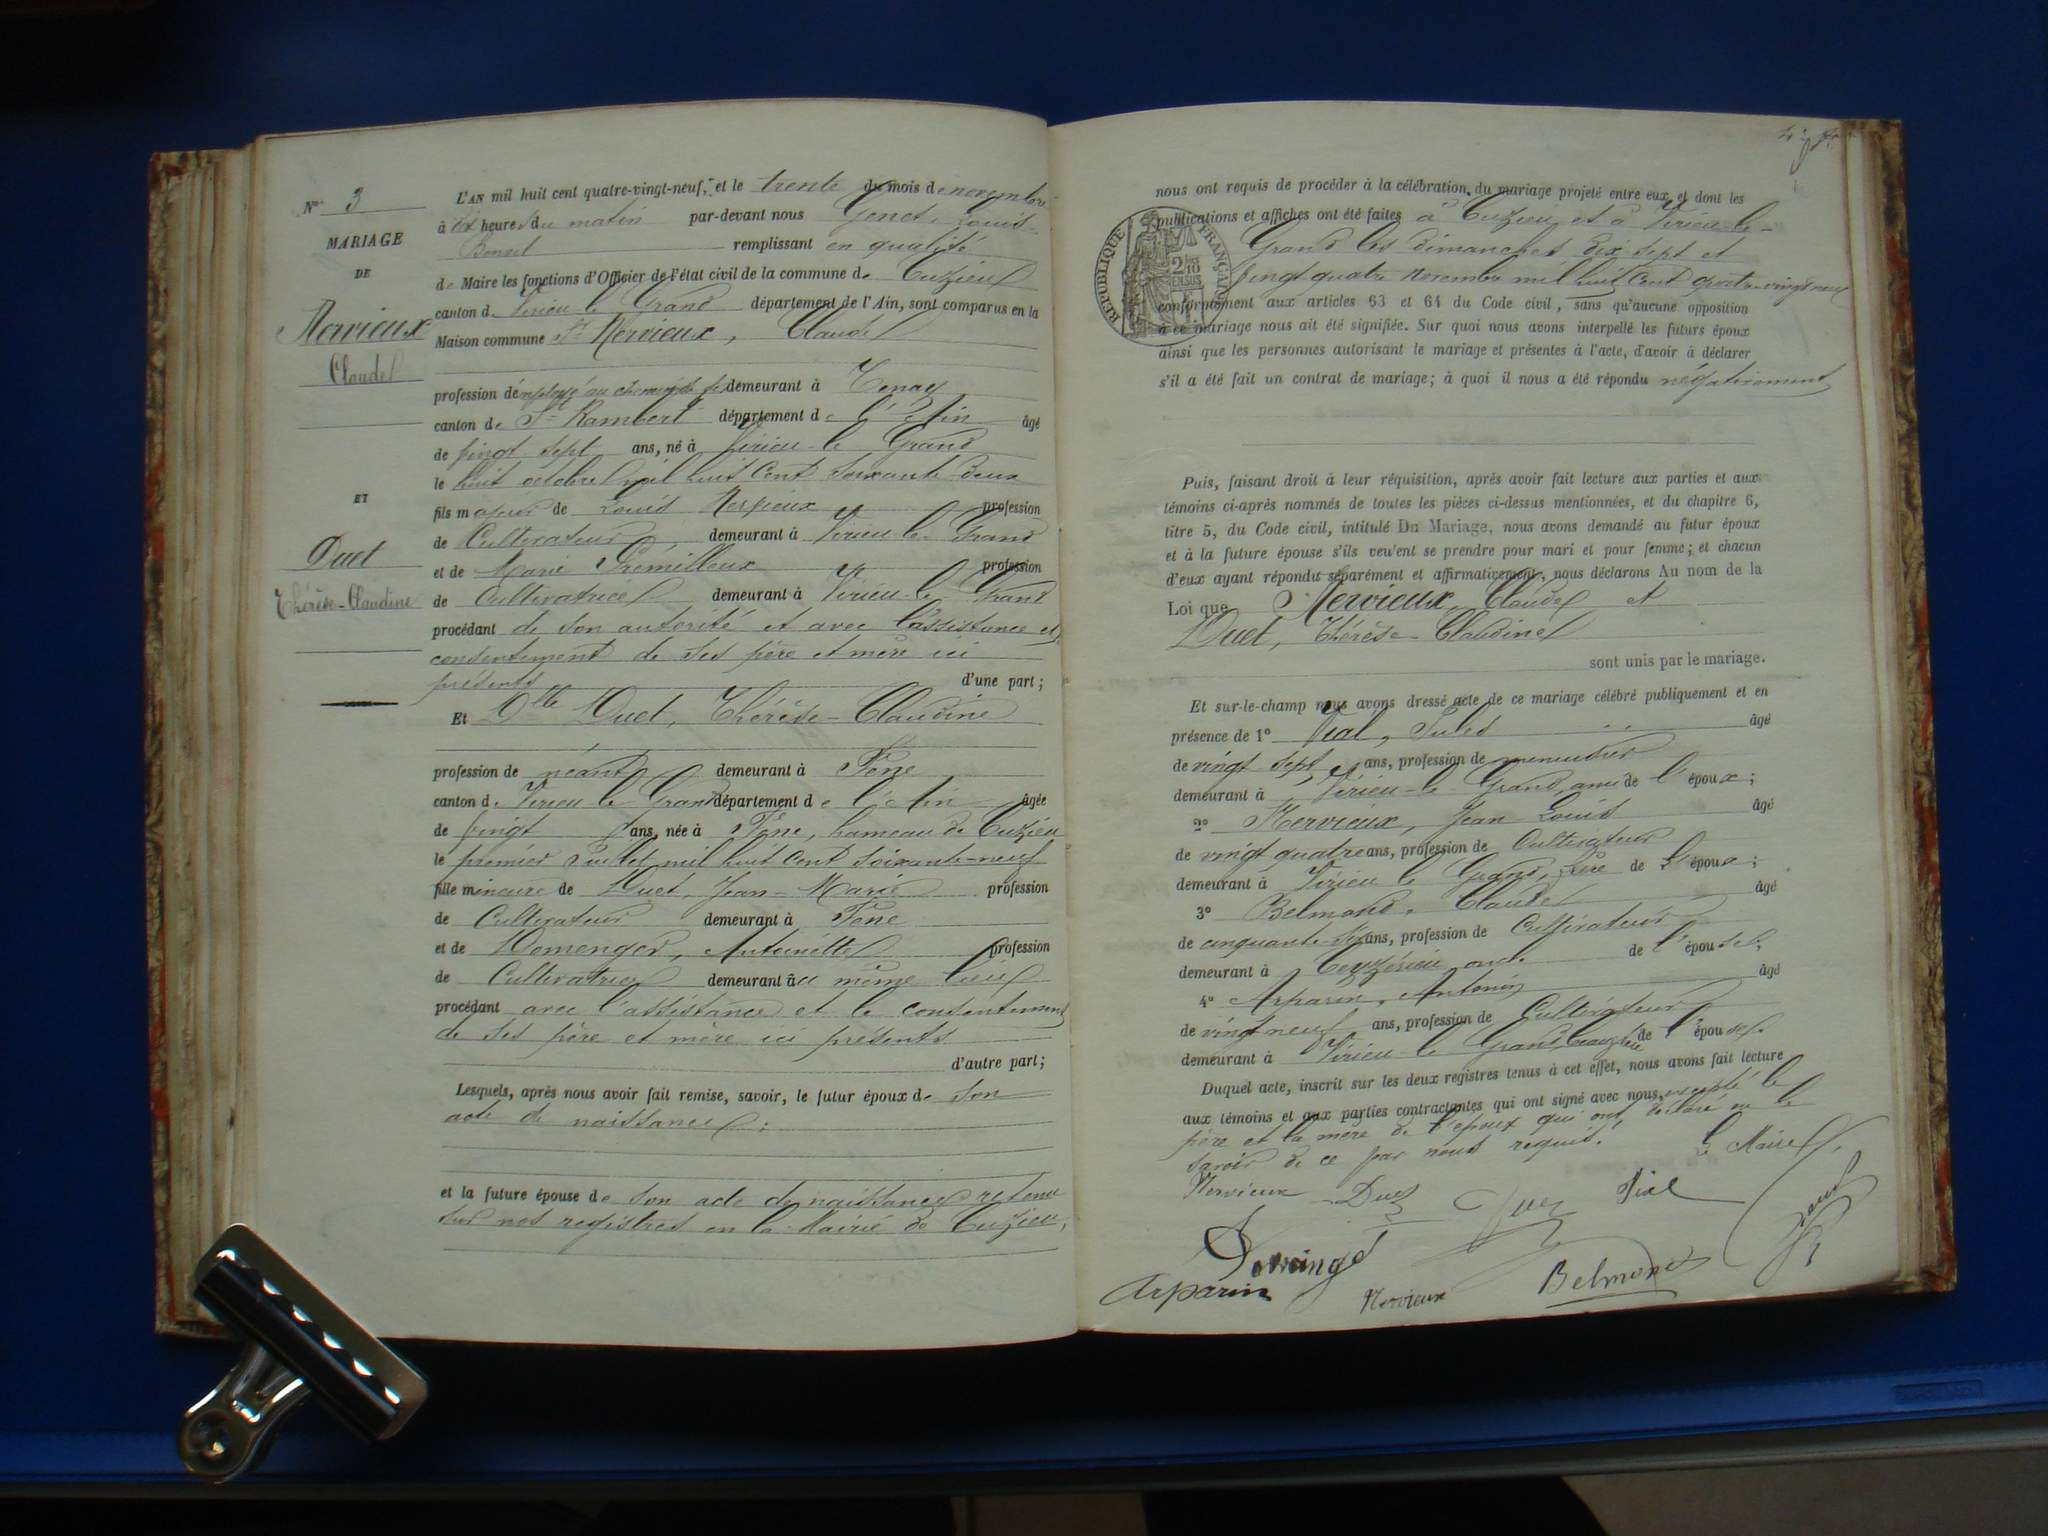 N° 3
MARIAGE
DE
Mervieux
Claude
ET
Duet
Thérèse-Claudine
L'AN mil huit cent quatre-vingt-neuf, et le trente du mois de novembre
à dix heures du matin par-devant nous Genet, Louis-
Benoit remplissant en qualité
de Maire les fonctions d'Officier de l'état civil de la commune de Cuzieu
canton de Virieu le Grand département de l'Ain, sont comparus en la
Maison commune Sr Mervieux, Claude
profession d'employé au chemin de fer demeurant à Tenay
canton de St Rambert département de l'Ain âgé
de vingt sept ans, né à Virieu-le Grand
le huit octobre mil huit cent soixante deux
fils majeur de Louis Mervieux profession
de Cultivateur demeurant à Virieu-le-Grand
et de Marie Prémilleux profession
de Cultivatrice demeurant à Virieu-le Grand
procédant de son autorité et avec l'assistance et
consentement de ses père et mère ici
présents d'une part;
Et Dlle Duet, Thérèse-Claudine
profession de néant demeurant à Fène
canton de Virieu le Grand département de l'Ain âgée
de vingt ans, née à Fène, hameau de Cuzieu
le premier Juillet mil huit cent soixante-neuf
fille mineure de Duet, Jean-Marie profession
de Cultivateur demeurant à Fène
et de Domenger, Antoinette profession
de Cultivatrice demeurant au même lieu
procédant avec l'assistance et le consentement
de ses père et mère ici présents
d'autre part;
Lesquels, après nous avoir fait remise, savoir, le futur époux de son
acte de naissance;
et la future épouse de son acte de naissance retenu
sur nos registres en la Mairie de Cuzieu,
nous ont requis de procéder à la célébration du mariage projeté entre eux et dont les
publications et affiches ont été faites à Cuzieu et à Virieu-le-
Grand les dimanches dix sept et
vingt quatre Novembre mil huit cent quatre-vingt neuf
RÉPUBLIQUE FRANÇAISE
conformément aux articles 63 et 64 du Code civil, sans qu'aucune opposition
à ce mariage nous ait été signifiée. Sur quoi nous avons interpellé les futurs époux
ainsi que les personnes autorisant le mariage et présentes à l'acte, d'avoir à déclarer
s'il a été fait un contrat de mariage; à quoi il nous a été répondu négativement
Puis, faisant droit à leur réquisition, après avoir fait lecture aux parties et aux
témoins ci-après nommés de toutes les pièces ci-dessus mentionnées, et du chapitre 6,
titre 5, du Code civil, intitulé Du Mariage, nous avons demandé au futur époux
et à la future épouse s'ils veulent se prendre pour mari et pour femme; et chacun
d'eux ayant répondu séparément et affirmativement, nous déclarons Au nom de la
Loi que Mervieux, Claude et
Duet, Thérèse-Claudine
sont unis par le mariage.
Et sur-le-champ nous avons dressé acte de ce mariage célébré publiquement et en
présence de 1° Vial, Jules âgé
de vingt sept ans, profession de menuisier
demeurant à Virieu-le Grand, ami de l'époux;
2° Mervieux, Jean Louis âgé
de vingt quatre ans, profession de Cultivateur
demeurant à Virieu le Grand, frère de l'époux;
3° Belmond, Claude âgé
de cinquante-six ans, profession de Cultivateur
demeurant à Ceyzérieu, oncle de l'épouse;
4° Arparin, Antonin âgé
de vingt neuf ans, profession de Cultivateur
demeurant à Virieu-le Grand, beau frère de l'épouse.
Duquel acte, inscrit sur les deux registres tenus à cet effet, nous avons fait lecture
aux témoins et aux parties contractantes qui ont signé avec nous, excepté le
père et la mère de l'époux qui ont déclaré ne le
savoir de ce par nous requis.
Le Maire,
Mervieux Duet Duet Vial
Domenge
Arparin Mervieux Belmond Genet